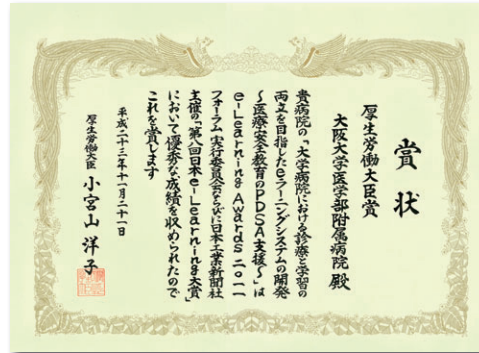 賞状
厚生労働大臣賞
大阪大学医学部附属病院 殿
貴病院の「大学病院における診療と学習の
両立を目指したeラーニングシステムの開発
～医療安全教育のPDSA支援～」は
e-Learning Awards 二〇一一
フォーラム実行委員会ならびに日本工業新聞社
主催の「第八回日本e-Learning大賞」
において優秀な成績を収められたので
これを賞します
平成二十三年十一月二十一日
厚生労働大臣 小宮山 洋子